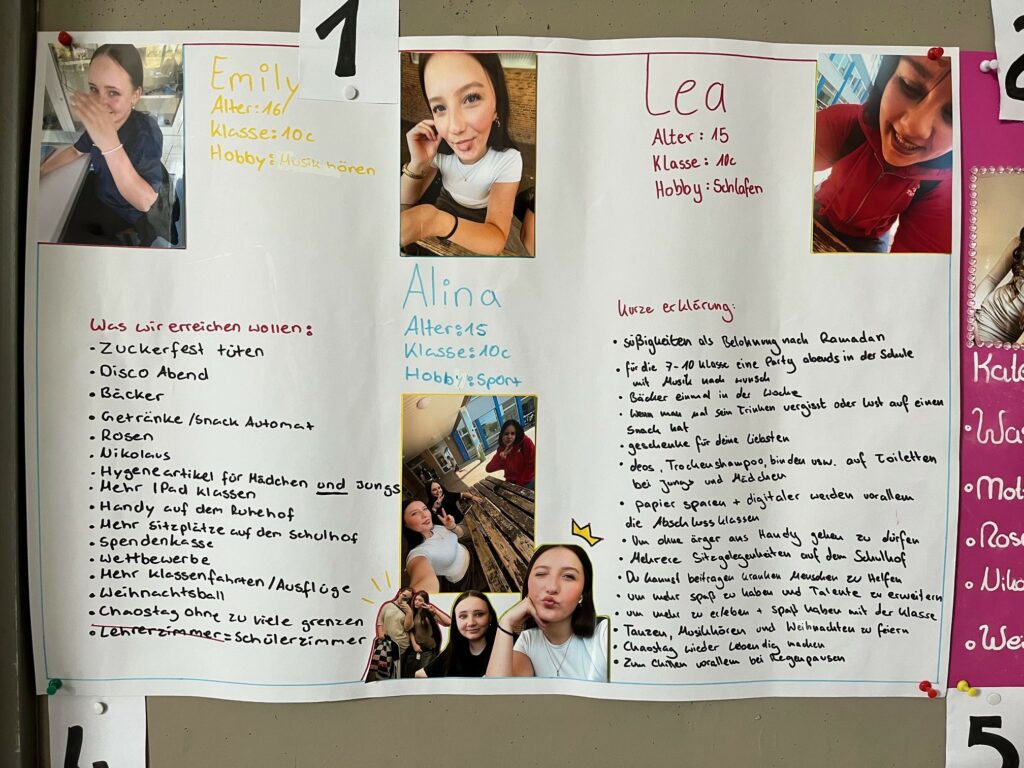 1
Emily
Alter: 16
Klasse: 10c
Hobby: Musik hören
Lea
Alter: 15
Klasse: 10c
Hobby: Schlafen
Alina
Alter: 15
Klasse: 10c
Hobby: Sport
Was wir erreichen wollen:
• Zuckerfest tüten
• Disco Abend
• Bäcker
• Getränke/Snack Automat
• Rosen
• Nikolaus
• Hygeneartikel für Mädchen und Jungs
• Mehr IPad Klassen
• Handy auf dem Ruhehof
• Mehr Sitzplätze auf den Schulhof
• Spendenkasse
• Wettbewerbe
• Mehr Klassenfahrten/Ausflüge
• Weihnachtsball
• Chaostag ohne zu viele grenzen
• Lehrerzimmer = Schülerzimmer
kurze erklärung:
• süßigkeiten als Belohnung nach Ramadan
• für die 7-10 Klasse eine Party abends in der Schule
mit Musik nach wunsch
• Bäcker einmal in der Woche
• Wenn man mal sein Trinken vergisst oder Lust auf einen
Snack hat
• geschenke für deine Liebsten
• deos, Trockenshampoo, binden usw. auf Toiletten
bei Jungs und Mädchen
• papier sparen + digitaler werden vorallem
die Abschlussklassen
• Um ohne ärger ans Handy gehen zu dürfen
• Mehrere Sitzgelegenheiten auf dem Schulhof
• Du kannst beitragen kranken Menschen zu Helfen
• um mehr spaß zu haben und Talente zu erweitern
• um mehr zu erleben + spaß haben mit der Klasse
• Tanzen, Musikhören und Weihnachten zu feiern
• Chaostag wieder lebendig machen
• Zum Chillen vorallem bei Regenpausen
2
Kale
• Wa
• Mot
• Rose
• Niko
• We
4
5